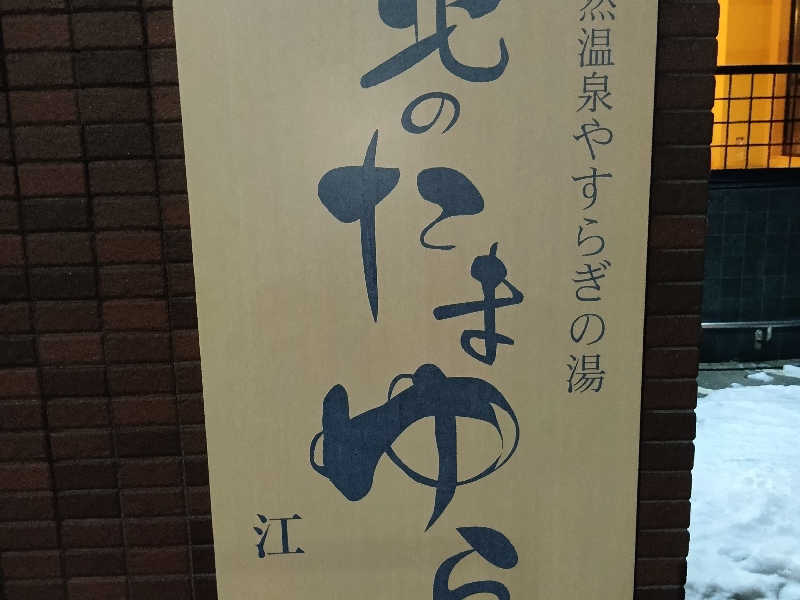 然温泉やすらぎの湯
北のたまゆら
江